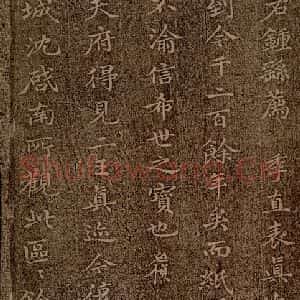 右鍾繇薦季直表真
到今千二百餘年矣而紙
不渝信希世之寶也
天府得見二王真迹今
城沈啓南所觀此區〻
Shufawang.CN